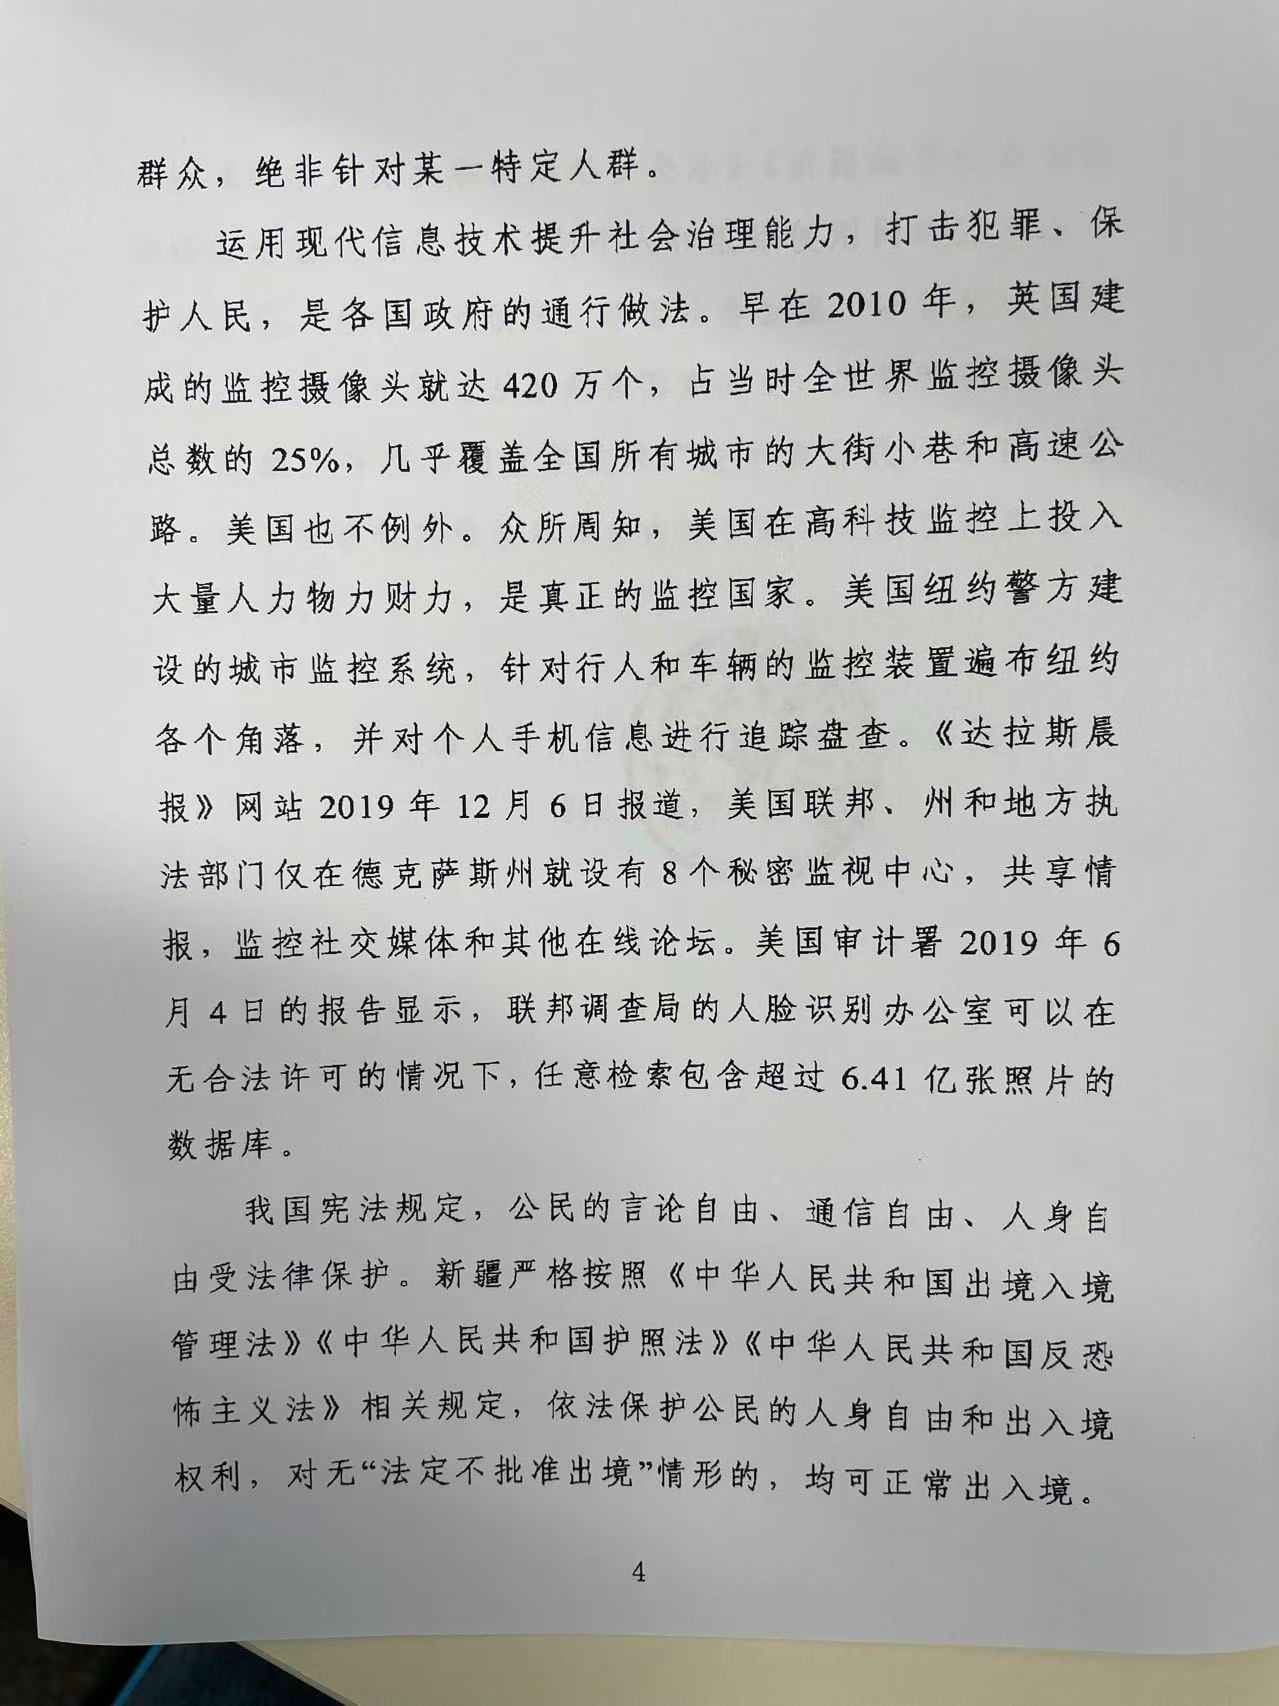 群众，绝非针对某一特定人群。
运用现代信息技术提升社会治理能力，打击犯罪、保
护人民，是各国政府的通行做法。早在 2010 年，英国建
成的监控摄像头就达 420 万个，占当时全世界监控摄像头
总数的 25%，几乎覆盖全国所有城市的大街小巷和高速公
路。美国也不例外。众所周知，美国在高科技监控上投入
大量人力物力财力，是真正的监控国家。美国纽约警方建
设的城市监控系统，针对行人和车辆的监控装置遍布纽约
各个角落，并对个人手机信息进行追踪盘查。《达拉斯晨
报》网站 2019 年 12 月 6 日报道，美国联邦、州和地方执
法部门仅在德克萨斯州就设有 8 个秘密监视中心，共享情
报，监控社交媒体和其他在线论坛。美国审计署 2019 年 6
月 4 日的报告显示，联邦调查局的人脸识别办公室可以在
无合法许可的情况下，任意检索包含超过 6.41 亿张照片的
数据库。
我国宪法规定，公民的言论自由、通信自由、人身自
由受法律保护。新疆严格按照《中华人民共和国出境入境
管理法》《中华人民共和国护照法》《中华人民共和国反恐
怖主义法》相关规定，依法保护公民的人身自由和出入境
权利，对无“法定不批准出境”情形的，均可正常出入境。
4